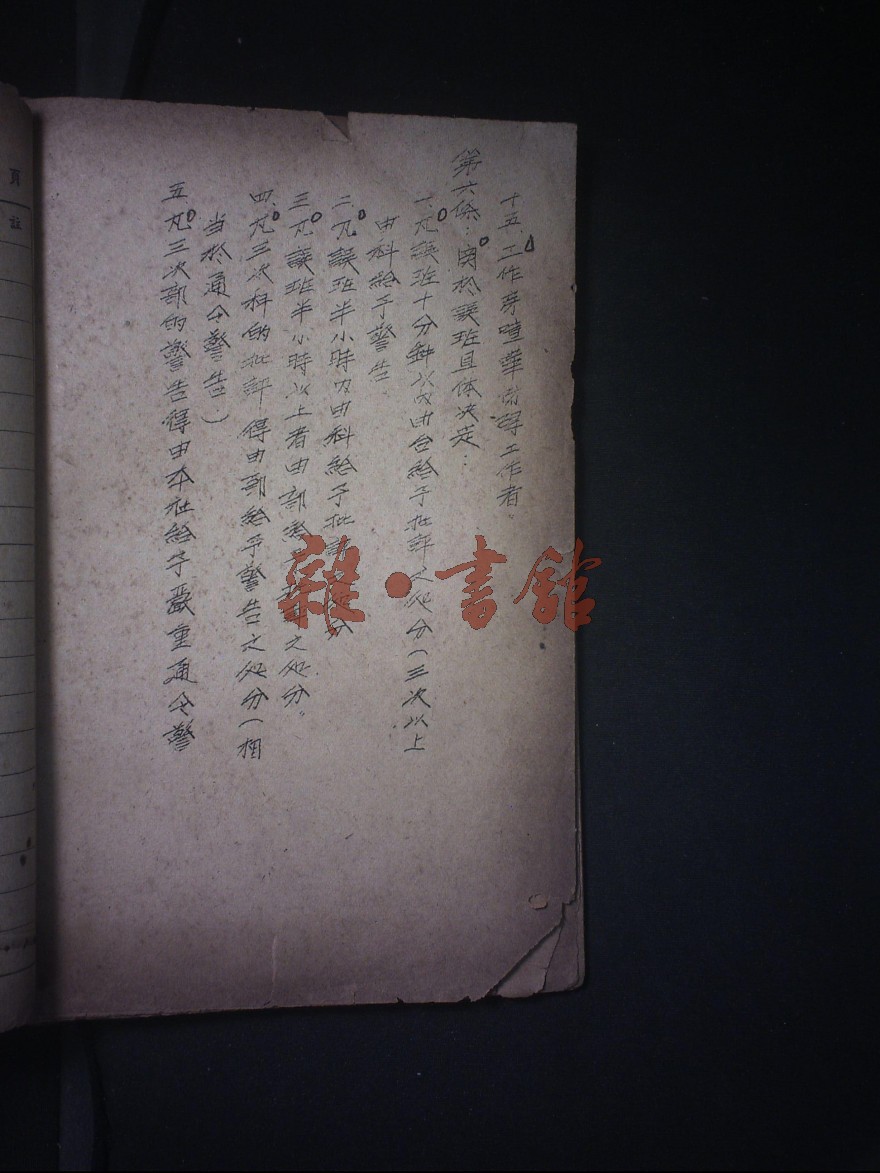 十五、工作時喧嘩妨碍工作者。
第六條：関於誤班具体决定：
一、凡誤班十分鈡以内由台給予批評之処分（三次以上
由科給予警告
二、凡誤班半小時内由科給予批評之処分
三、凡誤班半小時以上者由部給予批評之処分。
四、凡三次科的批評得由部給予警告之処分（相
当於通令警告）
五、凡三次部的警告得由本社給予嚴重通令警
頁
註
雜·書舘